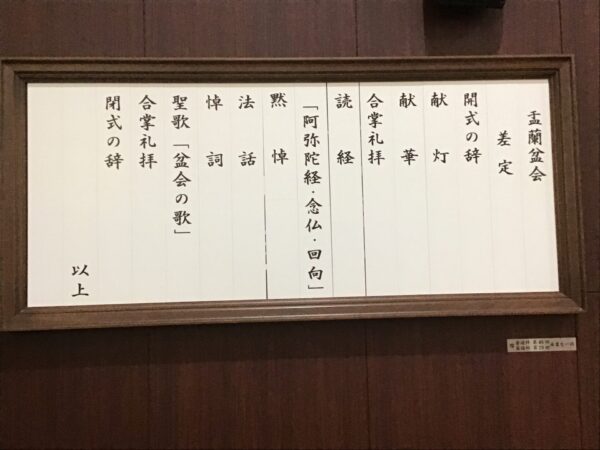 盂蘭盆会
差定
開式の辞
献灯
献華
合掌礼拝
読経
「阿弥陀経・念仏・回向」
黙悼
法話
悼詞
聖歌「盆会の歌」
合掌礼拝
閉式の辞
以上